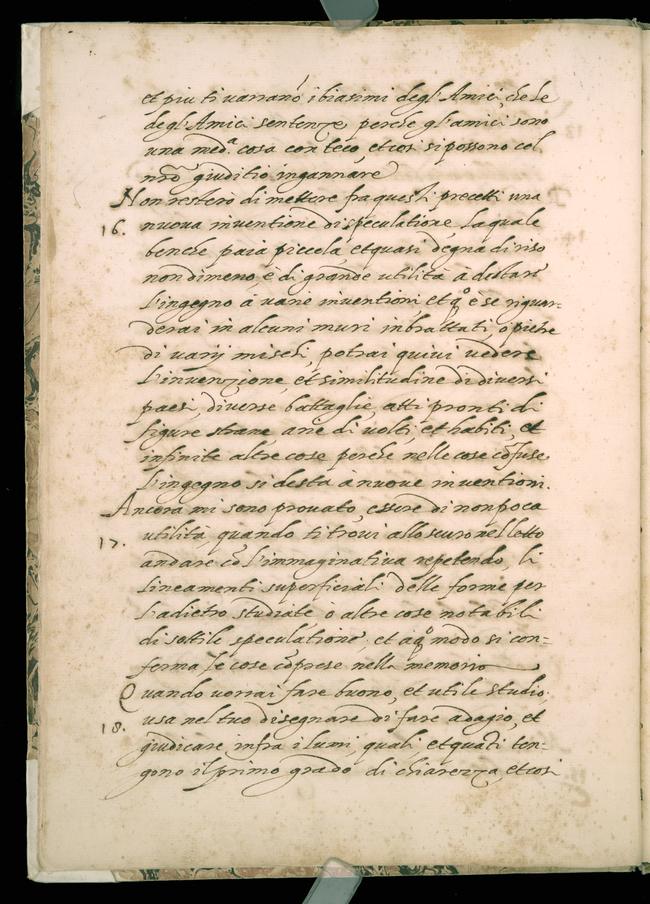 et piu ti varrano i biasimi degl'Amici, che le
degl'Amici sentenze, perche gl'amici sono
una med.ª cosa con teco, et cosi si possono col
nrõ giuditio ingannare
Non resterò di mettere fra questi precetti una
16. nuova inventione di speculatione, la quale
benche paia piccola, et quasi degna di riso
nondimeno, è di grande utilità à destare
l'ingegno à varie inventioni et q.º è se riguar=
derai in alcuni muri inbrattati, o pietre
di varij mischi, potrai quivi vedere
l'invenzione, et similitudine di diversi
paesi, diverse battaglie, atti pronti di
figure strane, arie di volti, et habiti, et
infinite altre cose perche nelle cose cõfuse
l'ingegno si desta à nuove inventioni.
Ancora mi sono provato, essere di non poca
17. utilità, quando ti trovi allo scuro nel letto
andare cõ l'immaginativa repetendo, li
lineamenti superficiali delle forme per
l'adietro studiate o altre cose notabili
di sottile speculatione, et a q.º modo si con=
ferma le cose cõprese nella memoria
Quando vorrai fare buono, et utile studio,
18. usa nel tuo disegnare di fare adagio, et
giudicare, infra i lumi, quali et quãti ten=
gono il primo grado di chiarezza, et cosi